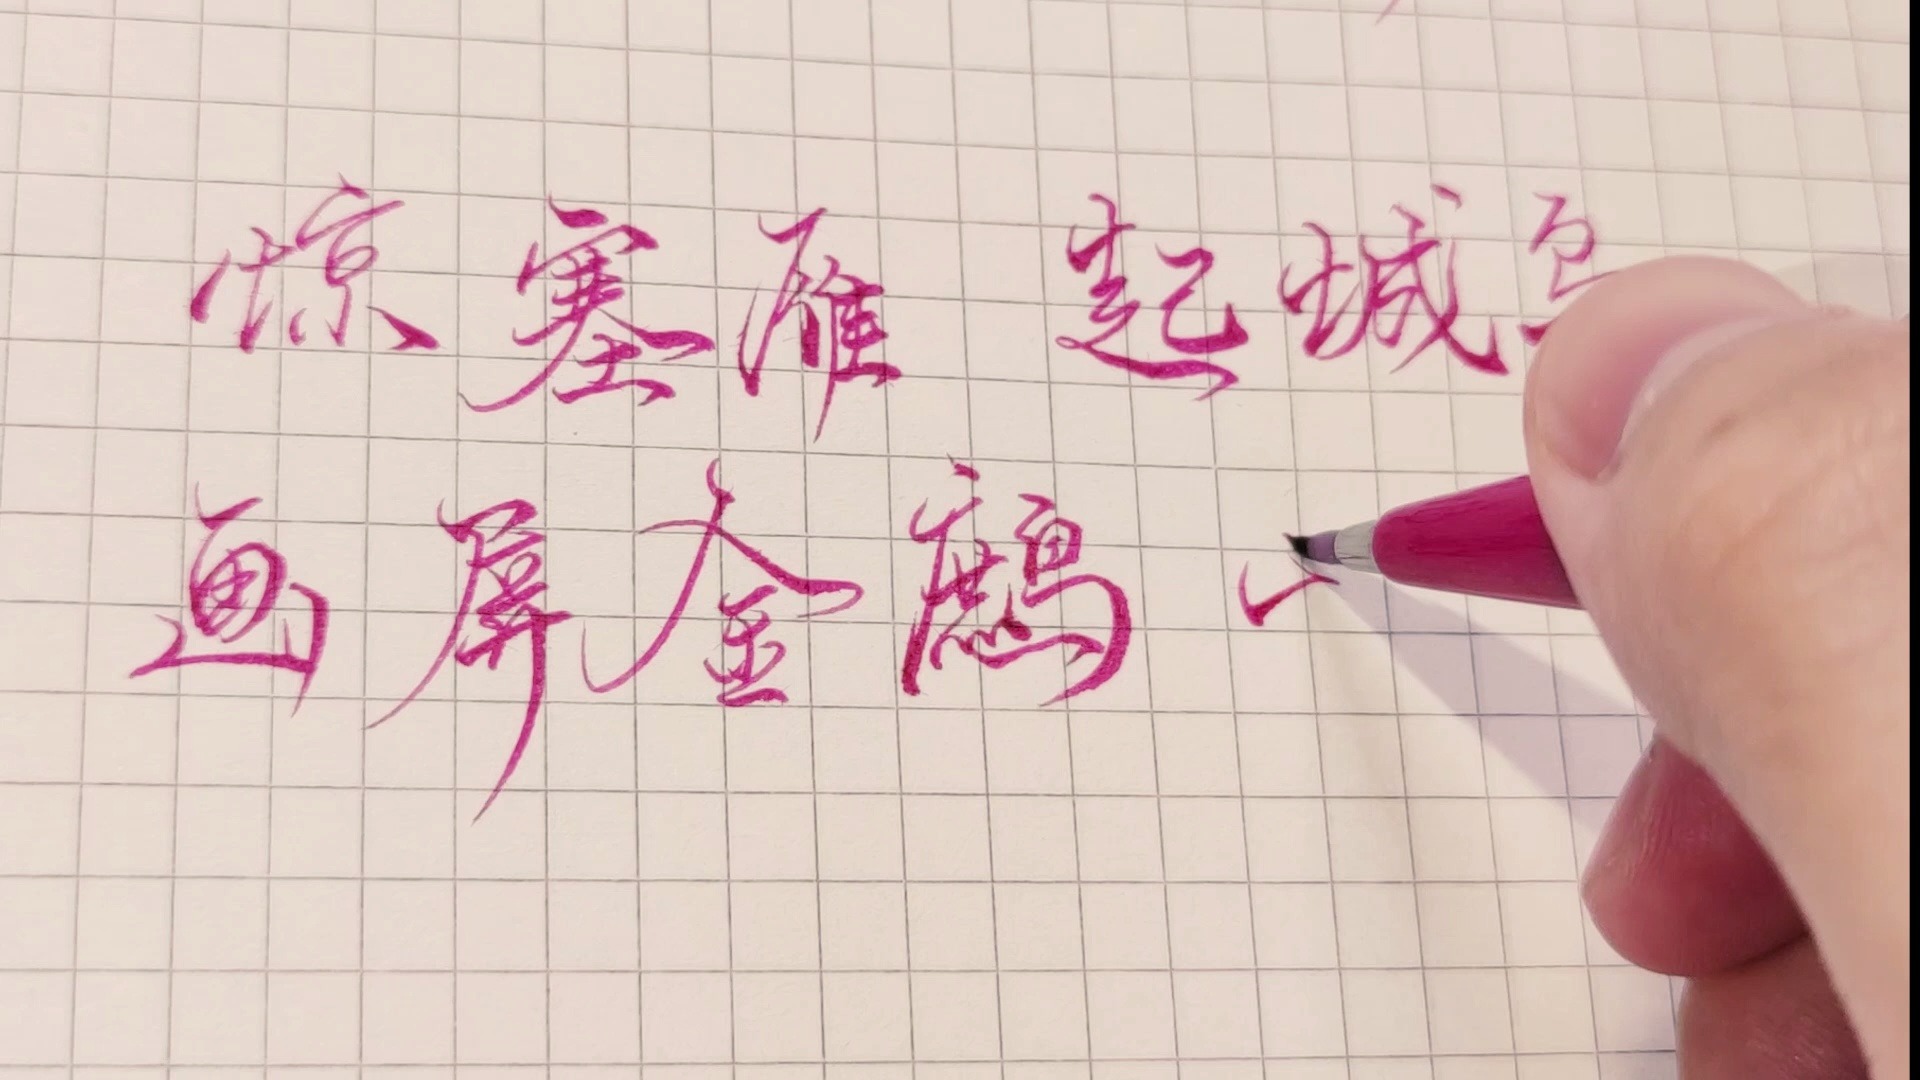 惊塞雁 起城乌
画屏金鹧